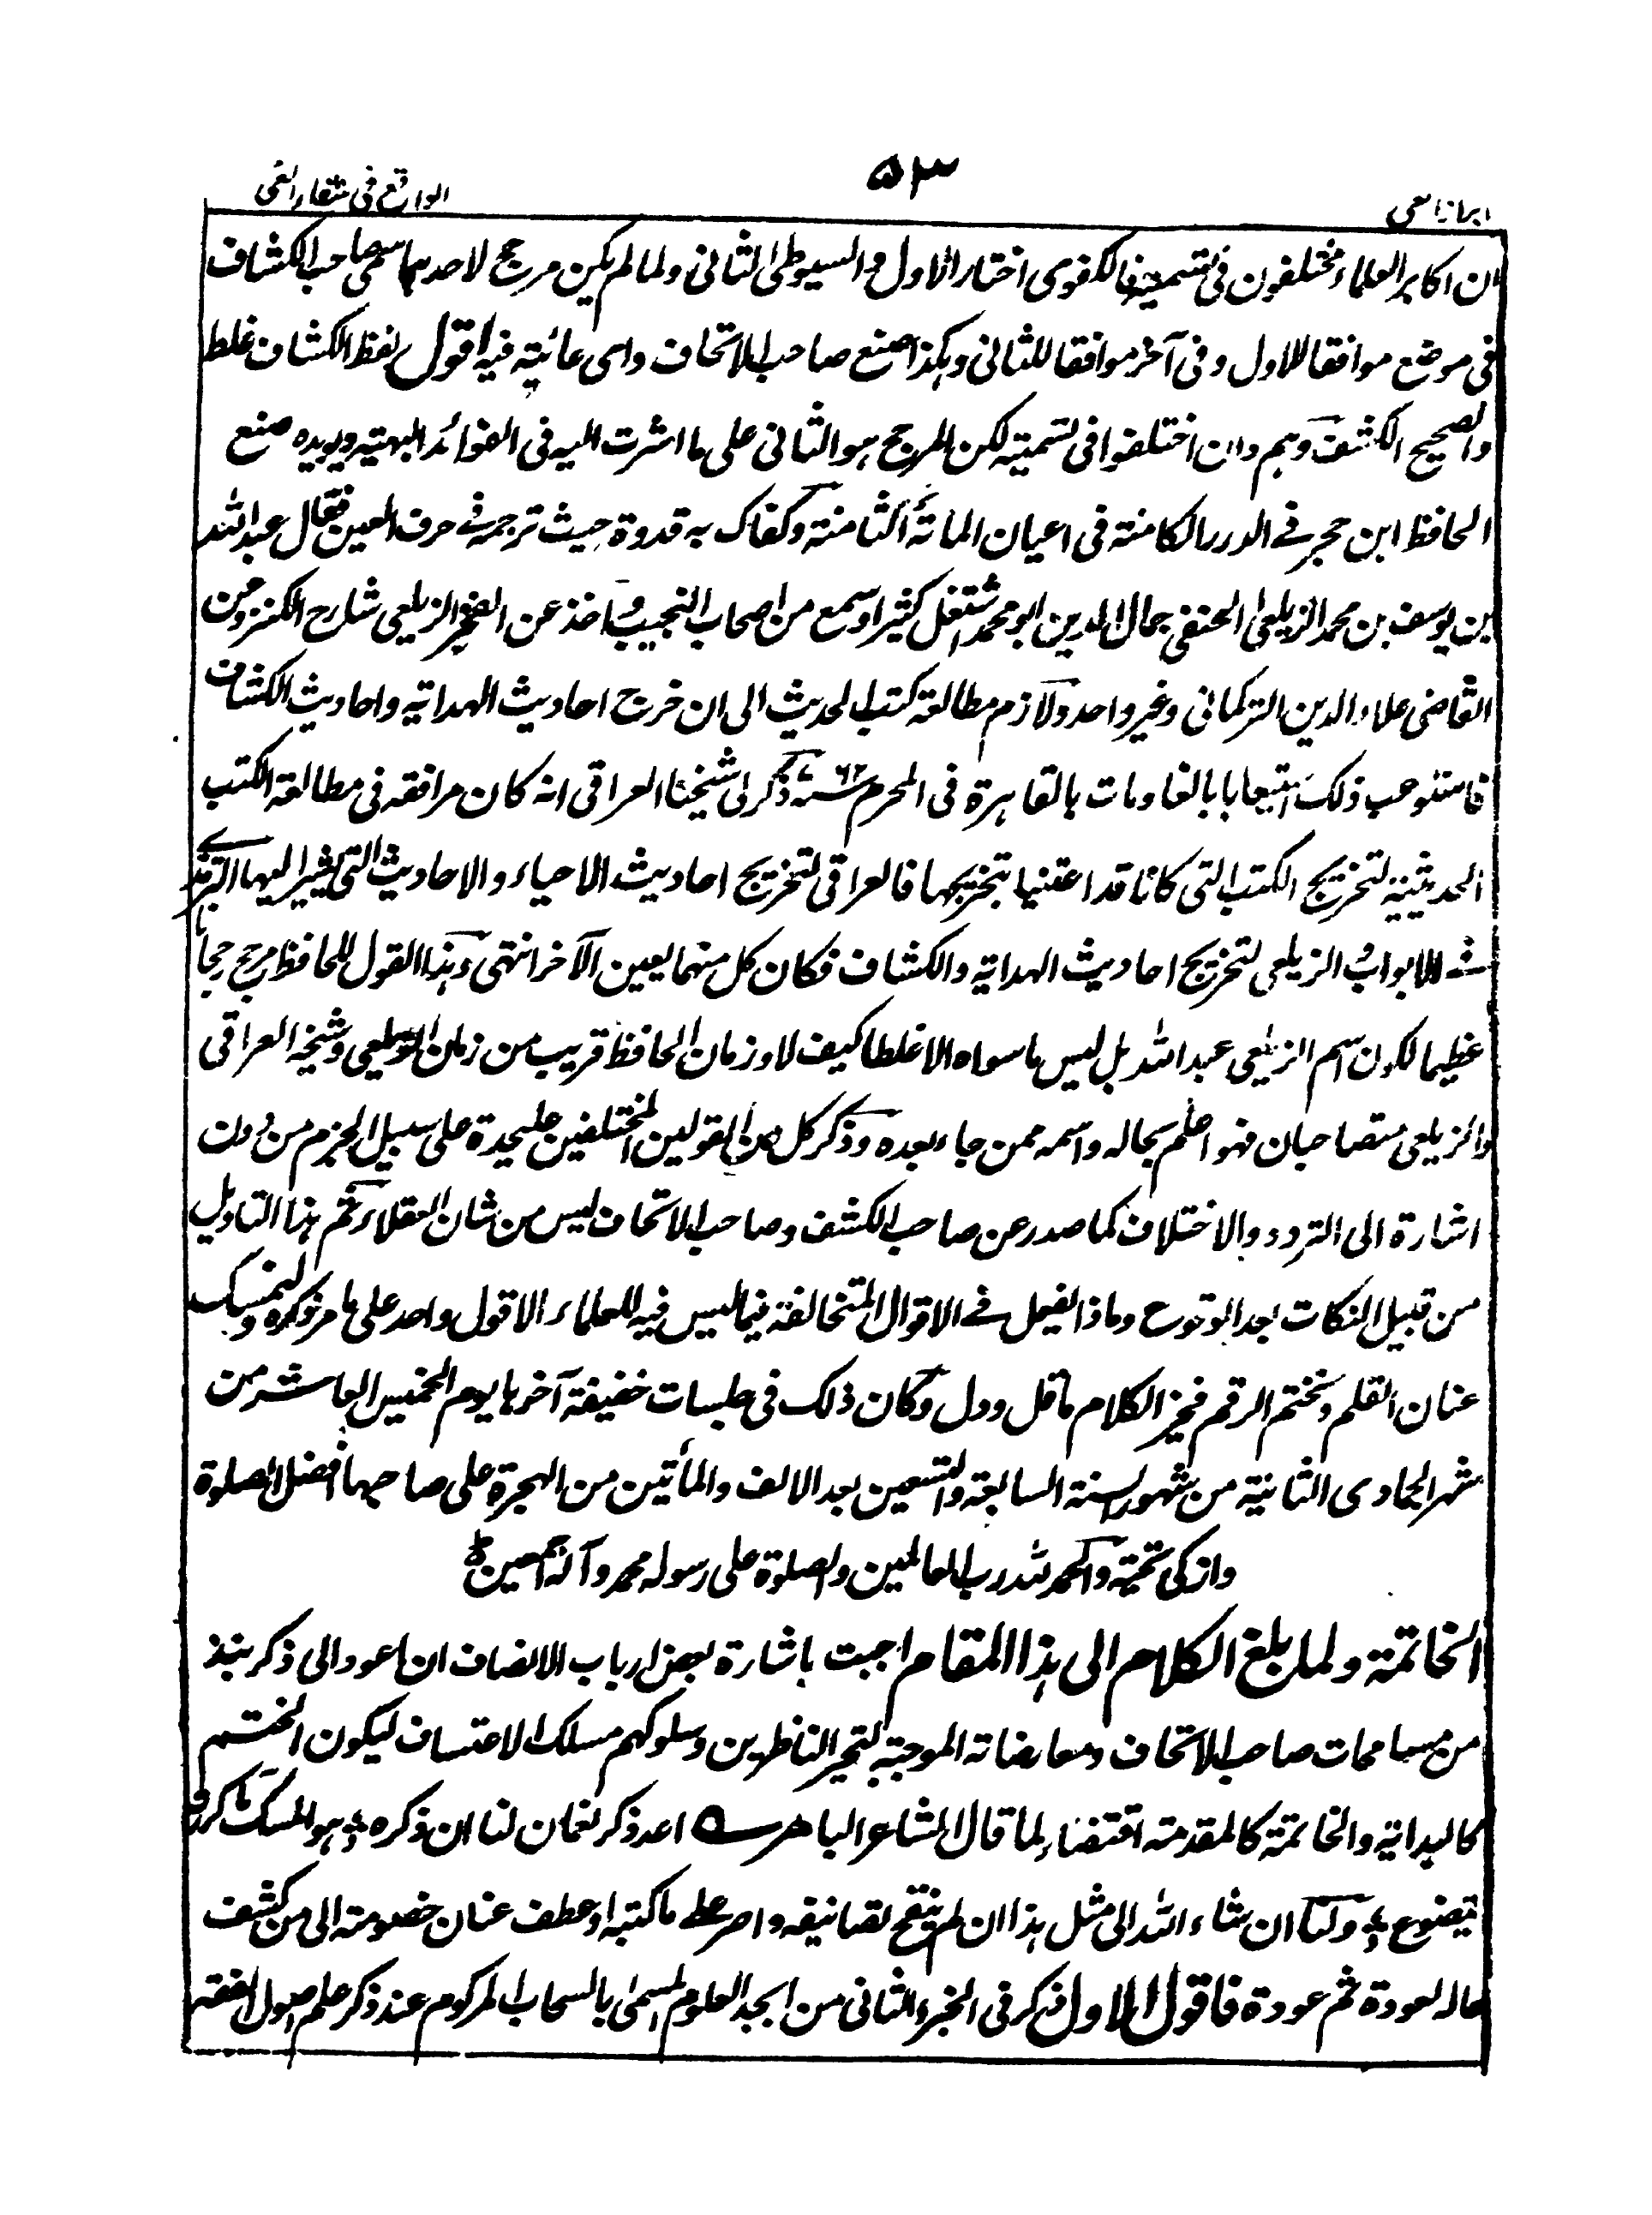 ابراز الغی
۵۳
الواقع فی شفاء العی
ان اکابر العلماء مختلفون فی تسمیته فالکفوی اختار الاول والسیوطی الثانی ولما لم یکن مرجح لاحدهما سمی صاحب الکشاف
فی موضع موافقا للاول وفی آخر موافقا للثانی وہکذا صنع صاحب الاتحاف وای عائبة فیه اقول لفظ الکشاف غلط
والصحیح الکشف وہم وان اختلفوا فی تسمیته لکن المرجح ہو الثانی علی ما اشرت الیه فی الفوائد البہیة ویویده صنع
الحافظ ابن حجر فے الدرر الکامنة فی اعیان المائة الثامنة وکفاک به قدوة حیث ترجمه فے حرف العین فقال عبد اللہ
بن یوسف بن محمد الزیلعی الحنفی جمال الدین ابو محمد اشتغل کثیرا وسمع من اصحاب النجیب واخذ عن الفخر الزیلعی شارح الکنز وعن
القاضی علاء الدین الترکمانی وغیر واحد ولازم مطالعة کتب الحدیث الی ان خرج احادیث الہدایة واحادیث الکشاف
فاستوعب ذلک استیعابا بالغا ومات بالقاہرة فی المحرم سنة ۷۶۲ ذکر لی شیخنا العراقی انه کان مرافقه فی مطالعة الکتب
الحدیثیة لتخریج الکتب التی کانا قد اعتنیا بتخریجہا فالعراقی لتخریج احادیث الاحیاء والاحادیث التی یشیر الیہا الترمذے
فے الابواب والزیلعی لتخریج احادیث الہدایة والکشاف فکان کل منہما یعین الآخر انتہی وہذا القول للحافظ مرجح رجحانا
عظیما لکون اسم الزیلعی عبد اللہ بل لیس ما سواه الا غلطا کیف لا وزمان الحافظ قریب من زمان الزیلعی وشیخه العراقی
والزیلعی متصاحبان فہو اعلم بحاله واسمه ممن جاء بعده وذکر کل من القولین المختلفین علیحدة علی سبیل الجزم من دون
اشارة الی التردد والاختلاف کما صدر عن صاحب الکشف وصاحب الاتحاف لیس من شان العقلاء ثم ہذا التاویل
من قبیل النکات بعد الوقوع وماذا یفعل فے الاقوال المتخالفة فیما لیس فیه للعلماء الا قول واحد علی ما مر ذکره ولنمسک
عنان القلم ونختم الرقم فخیر الکلام ما قل ودل وکان ذلک فی جلسات خفیفة آخرہا یوم الخمیس العاشر من
شہر الجمادی الثانیة من شہور السنة السابعة والتسعین بعد الالف والمأتین من الہجرة علی صاحبہا افضل الصلوة
وازکی تحیة والحمد للہ رب العالمین والصلوة علی رسوله محمد وآله اجمعین
الخاتمة ولما بلغ الکلام الی ہذا المقام اجبت باشارة بعض ارباب الانصاف ان اعود الی ذکر نبذ
من مسامحات صاحب الاتحاف ومعارضاته الموجبة لتحیر الناظرین وسلوکہم مسلک الاعتساف لیکون الختم
کالبدایة والخاتمة کالمقدمة اقتضاء لما قال الشاعر الباہر ے اعد ذکر نعمان لنا ان ذکره ؛ ہو المسک ما کررته
یتضوع ؛ ولنا ان شاء اللہ الی مثل ہذا ان لم ینقح تصانیفه واصر علے ما کتبه او عطف عنان خصومته الی من کشف
حاله لعودة ثم عودة فاقول الاول ذکر فی الجزء الثانی من ابجد العلوم المسمی بالسحاب المرکوم عند ذکر علم اصول الفقه